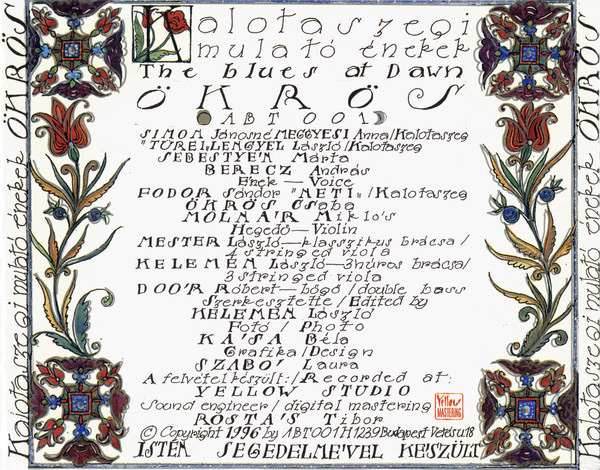 Kalotaszegi
mulató énekek
The blues at Dawn
ÖKRÖS
ABT 001
SIMON Jánosné MEGGYESI Anna/Kalotaszeg
"TÜREI LENGYEL László/Kalotaszeg
SEBESTYE'N Márta
BERECZ András
Ének — Voice
FODOR Sándor "NETI"/Kalotaszeg
ÖKRÖS Csaba
MOLNA'R Miklo's
Hegedő—Violin
MESTER László—klasszikus brácsa/
4 stringed viola
KELEMEN László—3húros brácsa/
3 stringed viola
DOO'R Róbert—bőgő/double bass
Szerkesztette/Edited by
KELEMEN László
Fotó / Photo
KA'SA Béla
Grafika/Design
SZABO' Laura
A felvétel készült:/Recorded at:
YELLOW STUDIO
Sound engineer/digital mastering
Yellow
MASTERING
ROSTA'S Tibor
© Copyright 1996 by ABT001 H1239 Budapest
ISTEN SEGEDELME'VEL KE'SZÜLT
Kalotaszegi mulató énekek ÖKRÖS
Kalotaszegi mulató énekek ÖKRÖS